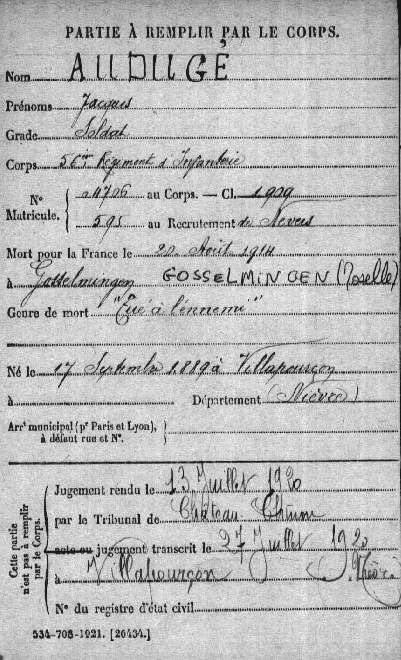 PARTIE À REMPLIR PAR LE CORPS.
Nom AUDUGÉ
Prénoms Jacques
Grade Soldat
Corps 56ième Régiment d'Infanterie
N° Matricule. { 04706 au Corps. — Cl. 1909
595 au Recrutement de Nevers
Mort pour la France le 20 Août 1914
à Gosselmingen GOSSELMINGEN (Moselle)
Genre de mort "Tué à l'ennemi"
Né le 17 Septembre 1889 à Villapourçon
à Département (Nièvre)
Arrt municipal (pr Paris et Lyon), à défaut rue et N°.
Cette partie n'est pas à remplir par le Corps.
Jugement rendu le 13 Juillet 1920
par le Tribunal de Château Chinon
acte ou jugement transcrit le 27 Juillet 1920
à Villapourçon Nièvre
N° du registre d'état civil
534-708-1921. [26434.]